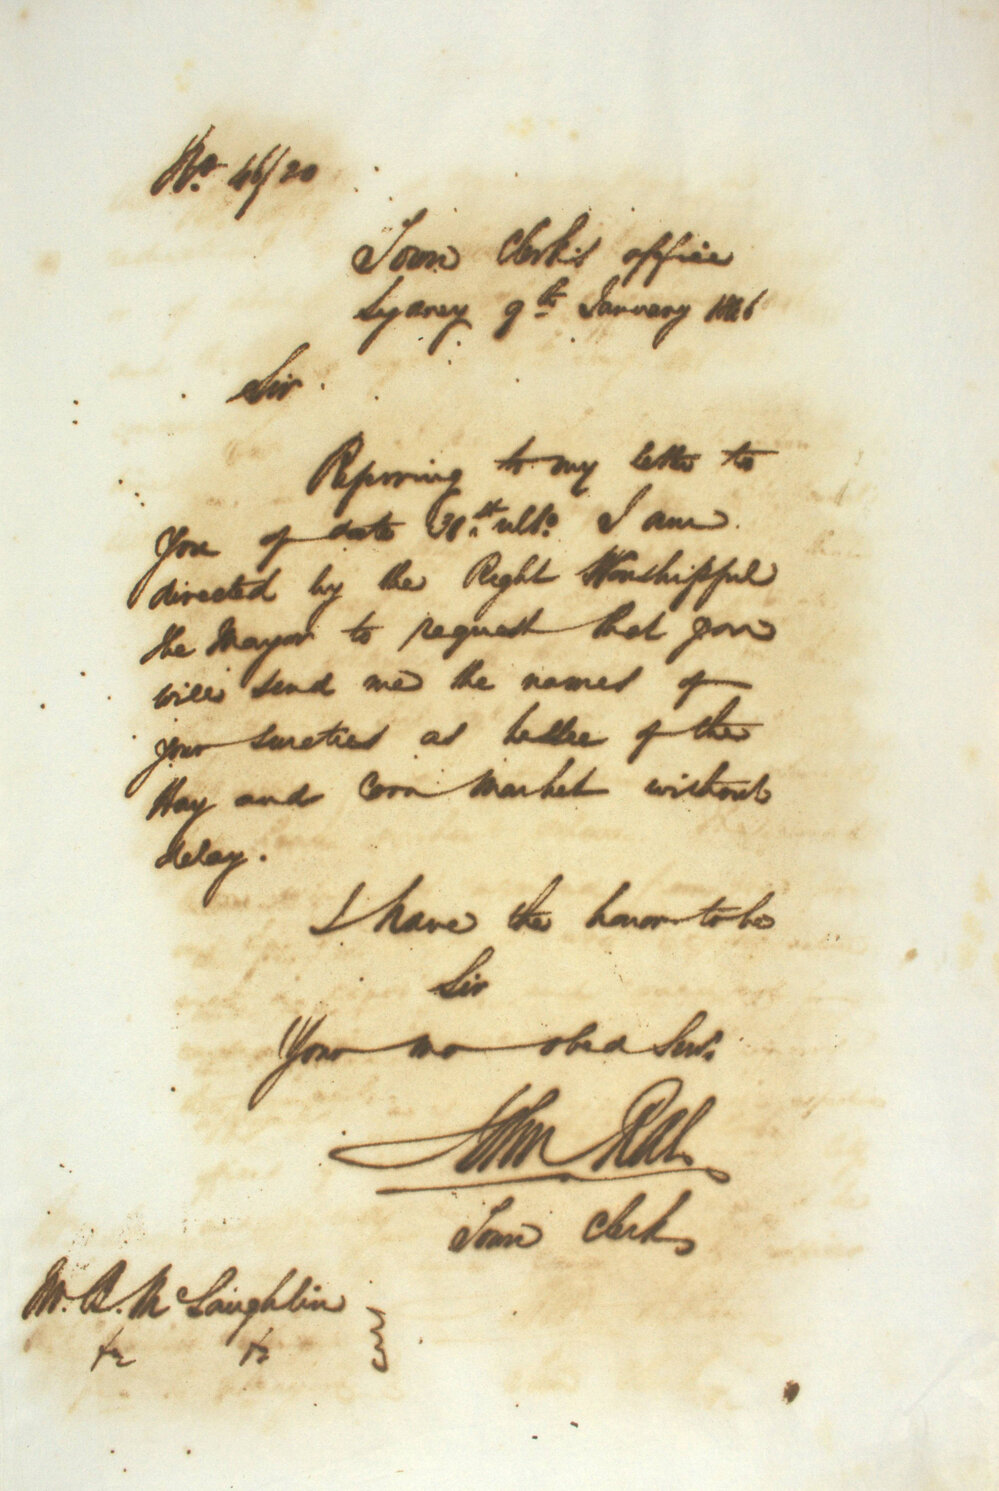 No. 46/20
Town Clerk's office
Sydney 9th January 1846
Sir
Referring to my letter to
you of date ulto. I am
directed by the Right Worshipful
the Mayor to request that you
will send me the names of
your sureties as lessee of the
Hay and Corn Market without
delay.
I have the honor to be
Sir
Your mo obed Servt.
John Rae
Town Clerk
Mr. B. McLaughlin
&c &c